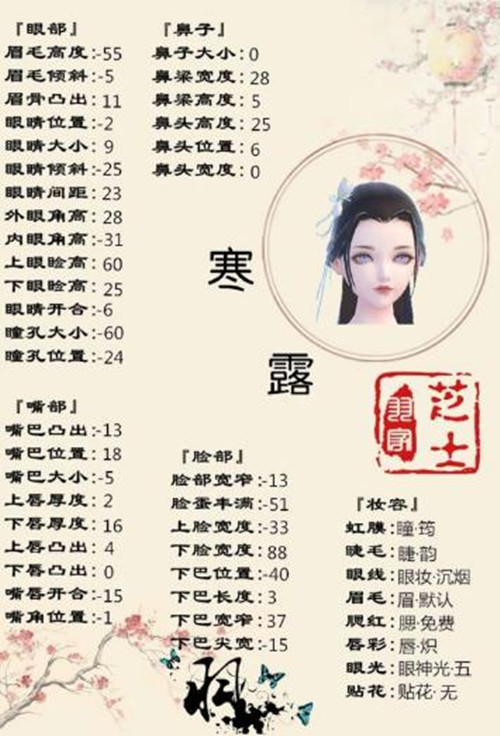 『眼部』
眉毛高度:-55
眉毛倾斜:-5
眉骨凸出:11
眼睛位置:-2
眼睛大小:9
眼睛倾斜:-25
眼睛间距:23
外眼角高:28
内眼角高:-31
上眼睑高:60
下眼睑高:25
眼睛开合:-6
瞳孔大小:-60
瞳孔位置:-24
『鼻子』
鼻子大小:0
鼻梁宽度:28
鼻梁高度:5
鼻头高度:25
鼻头位置:6
鼻头宽度:0
寒
露
芝士
羽字
『嘴部』
嘴巴凸出:-13
嘴巴位置:18
嘴巴大小:-5
上唇厚度:2
下唇厚度:16
上唇凸出:4
下唇凸出:0
嘴唇开合:-15
嘴角位置:-1
『脸部』
脸部宽窄:-13
脸蛋丰满:-51
上脸宽度:-33
下脸宽度:88
下巴位置:-40
下巴长度:3
下巴宽窄:37
下巴尖宽:-15
『妆容』
虹膜:瞳·筠
睫毛:睫·韵
眼线:眼妆·沉烟
眉毛:眉·默认
腮红:腮·免费
唇彩:唇·炽
眼光:眼神光·五
贴花:贴花·无
羽